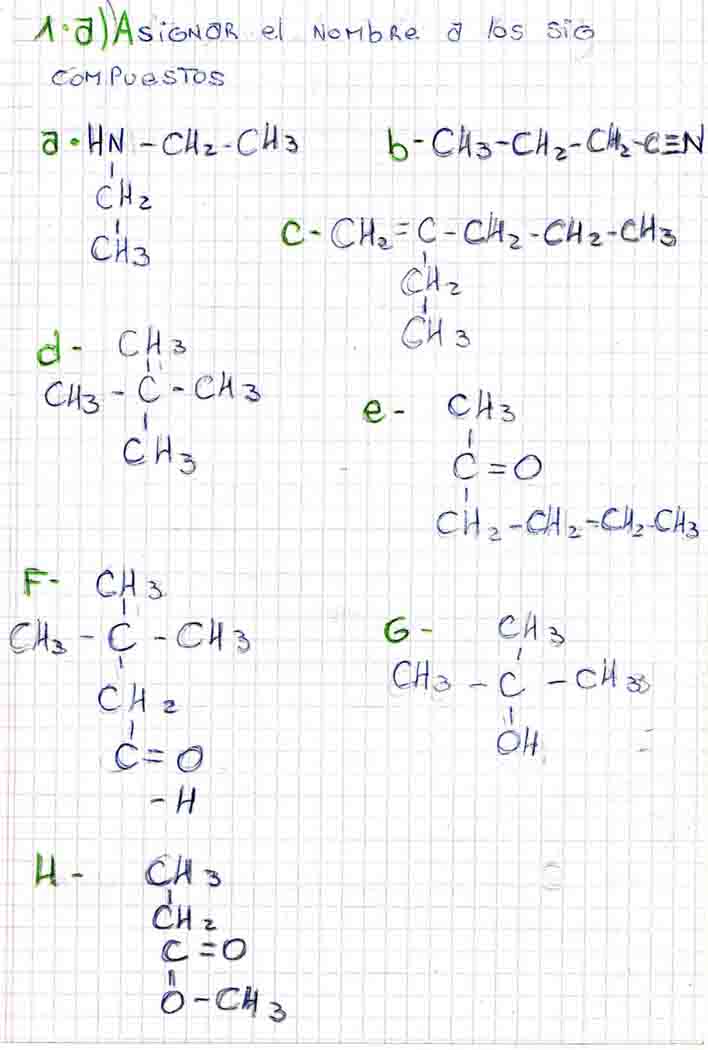 1.a) Asignar el nombre a los sig
compuestos
a. HN - CH2 - CH3
CH2
CH3
b- CH3-CH2-CH2-C≡N
c- CH2=C-CH2-CH2-CH3
CH2
CH3
d- CH3
CH3 - C - CH3
CH3
e- CH3
C=O
CH2-CH2-CH2-CH3
F- CH3
CH3 - C - CH3
CH2
C=O
-H
G- CH3
CH3 - C - CH3
OH
H- CH3
CH2
C=O
O-CH3